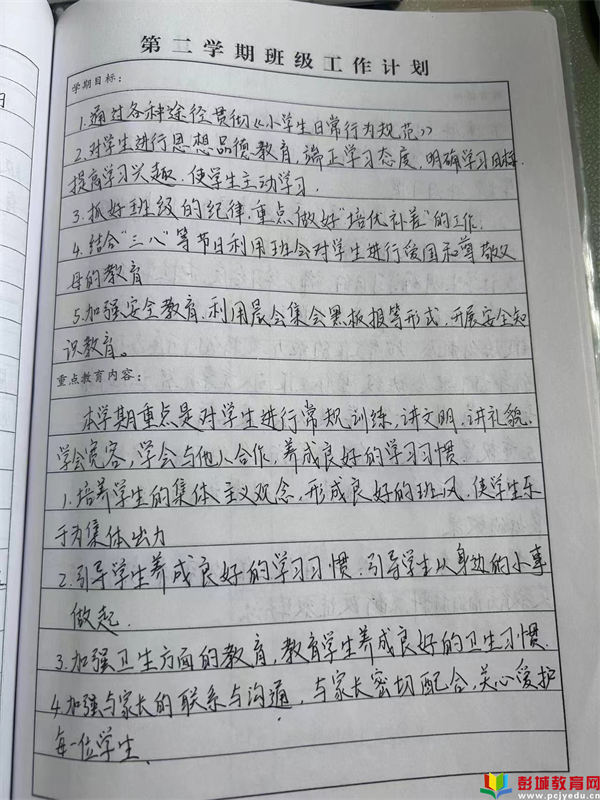 第二学期班级工作计划
学期目标：
1.通过各种途径贯彻《小学生日常行为规范》
2.对学生进行思想品德教育，端正学习态度，明确学习目标，
提高学习兴趣，使学生主动学习．
3.抓好班级的纪律，重点做好“培优补差”的工作．
4.结合“三八”等节日利用班会对学生进行爱国和尊敬父
母的教育
5.加强安全教育，利用晨会集会黑板报等形式，开展安全知
识教育。
重点教育内容：
本学期重点是对学生进行常规训练，讲文明，讲礼貌，
学会宽容，学会与他人合作，养成良好的学习习惯．
1.培养学生的集体主义观念，形成良好的班风，使学生乐
于为集体出力
2.引导学生养成良好的学习习惯．引导学生从身边的小事
做起．
3.加强卫生方面的教育，教育学生养成良好的卫生习惯．
4.加强与家长的联系与沟通，与家长密切配合，关心爱护
每一位学生．
彭城教育网
www.pcjyedu.cn